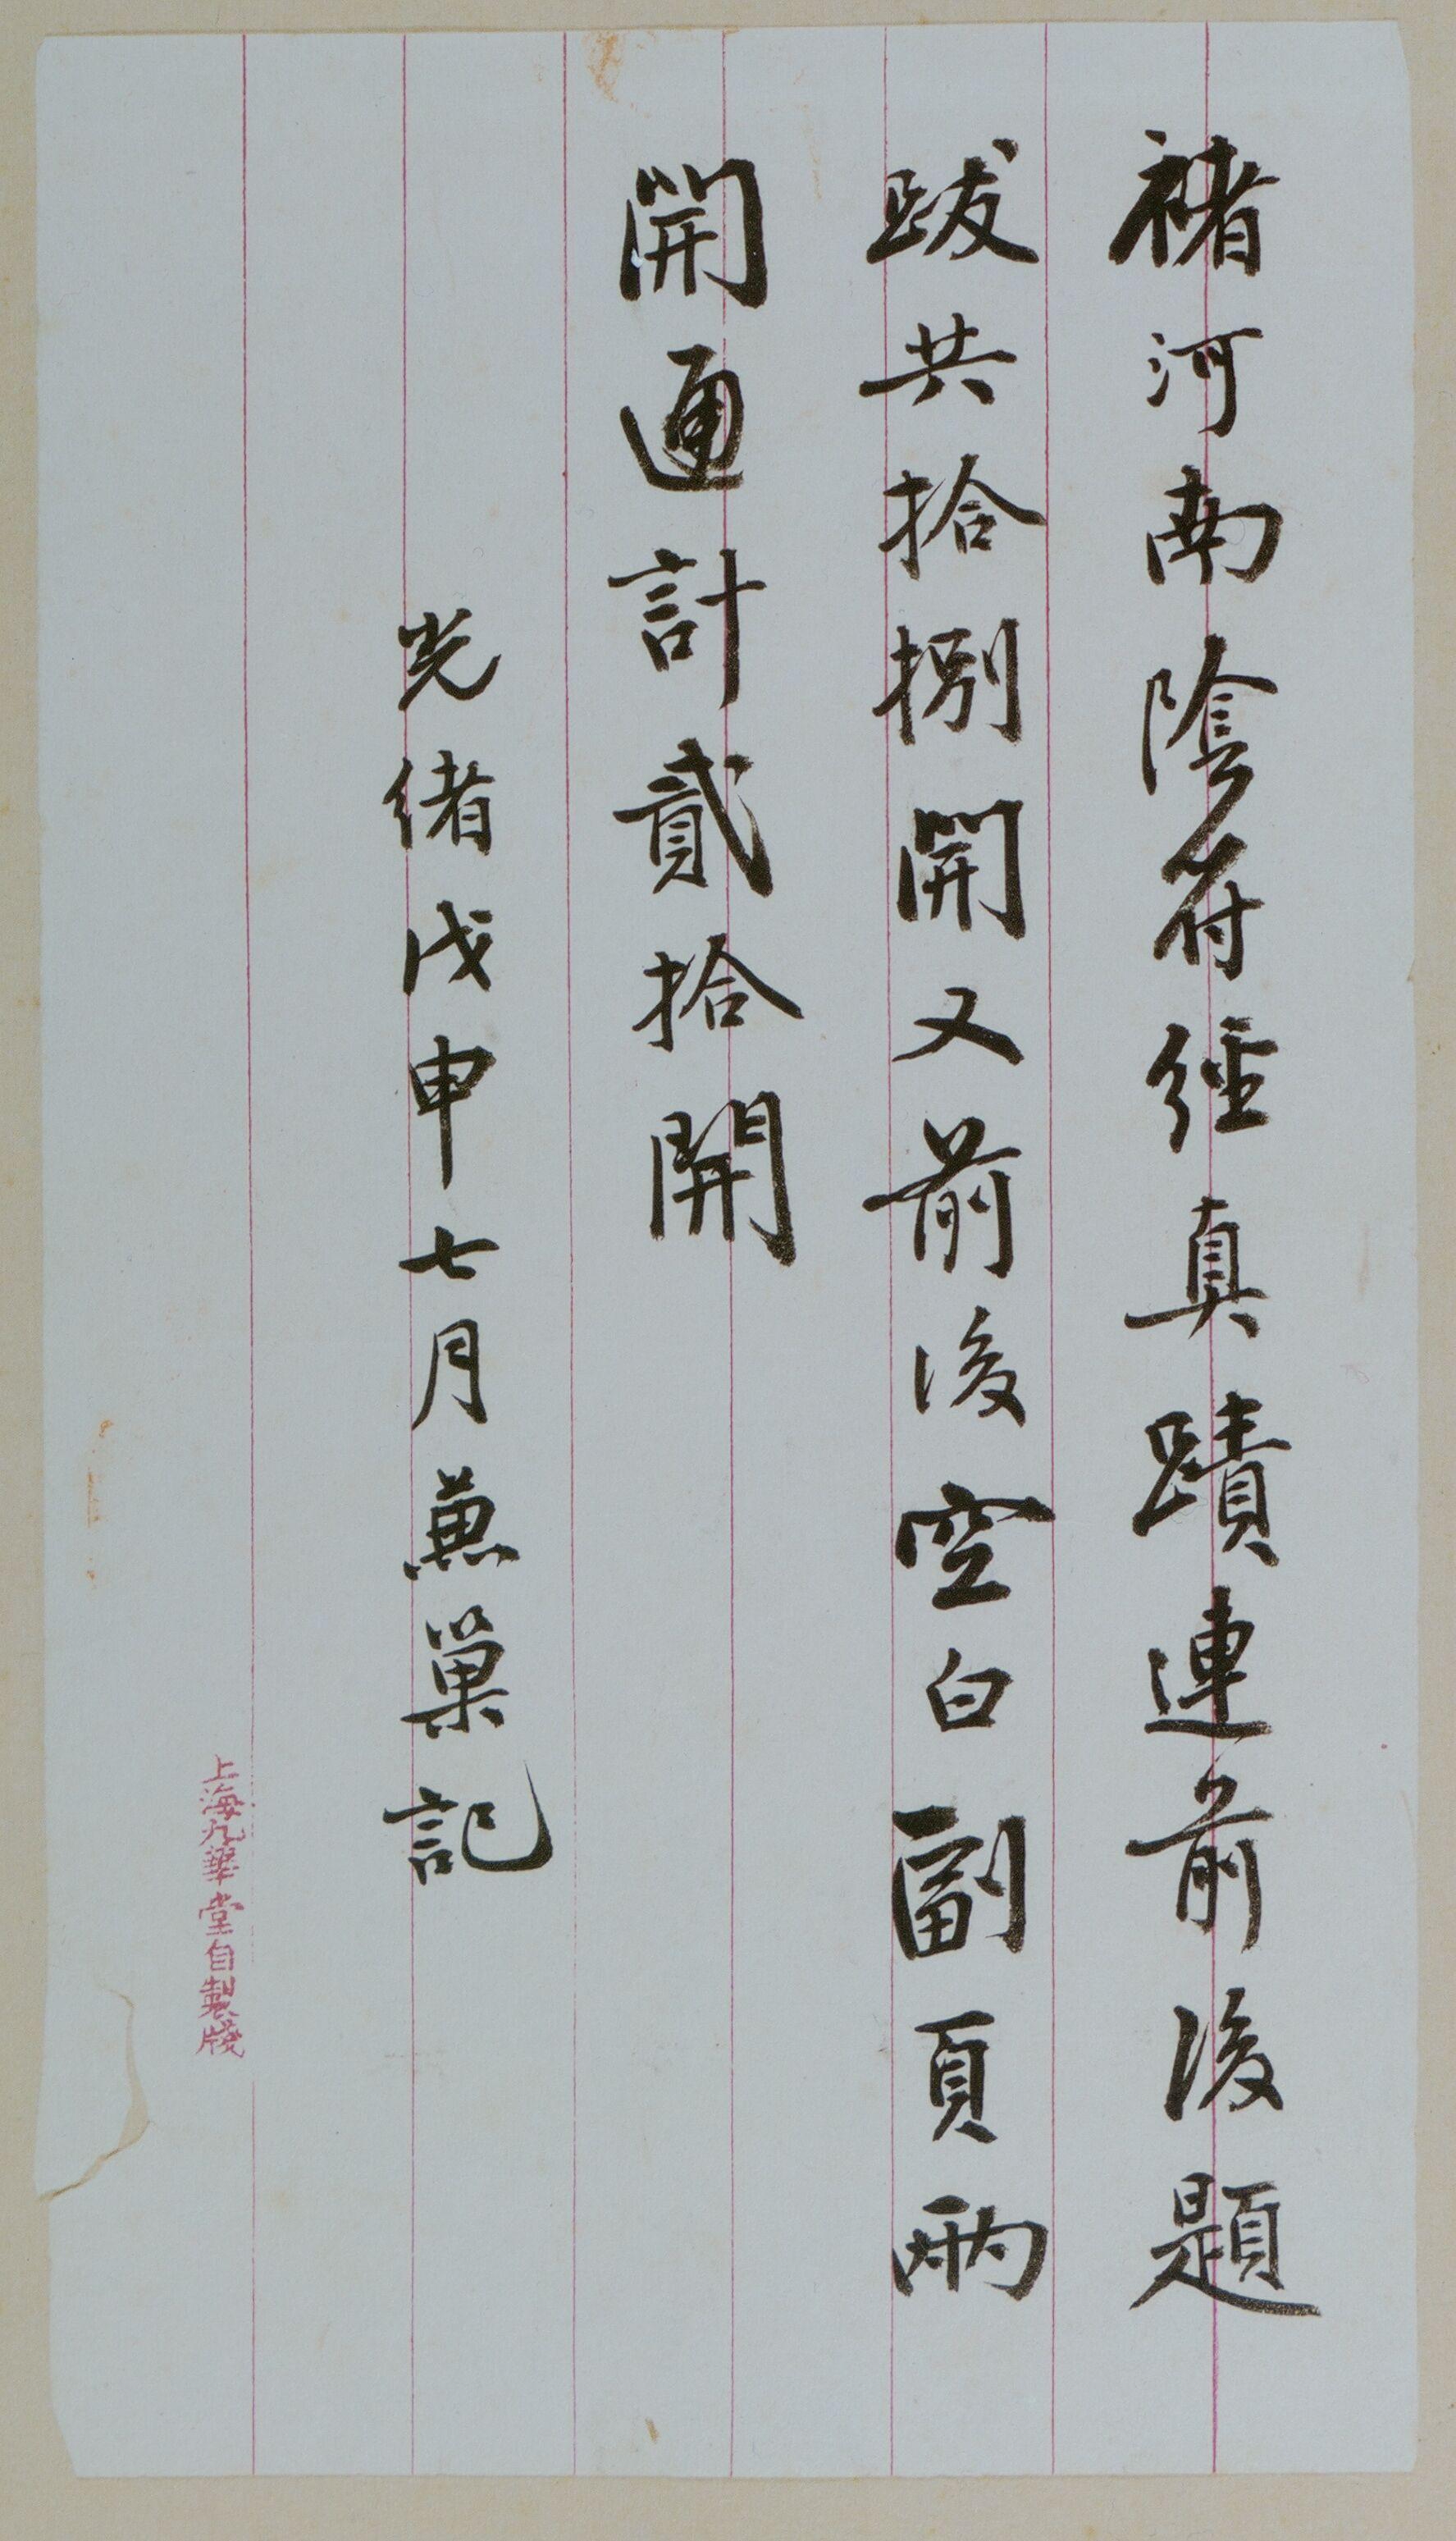 褚河南陰符經真蹟連前後題
跋共拾捌開又前後空白副頁兩
開通計貳拾開
光緒戊申七月蕪巢記
上海九華堂自製牋